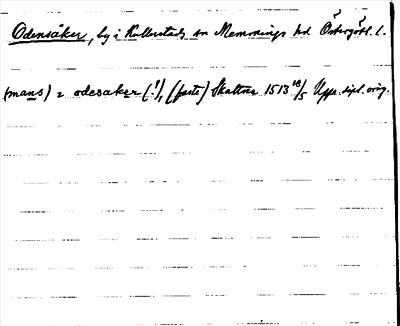 Odensåker, by i Kullerstads sn Memmings hd Östergötl. l.
(mans) 2 odesaker (!), (faste) Skattna 1513 18/5 Upps. dipl. orig.